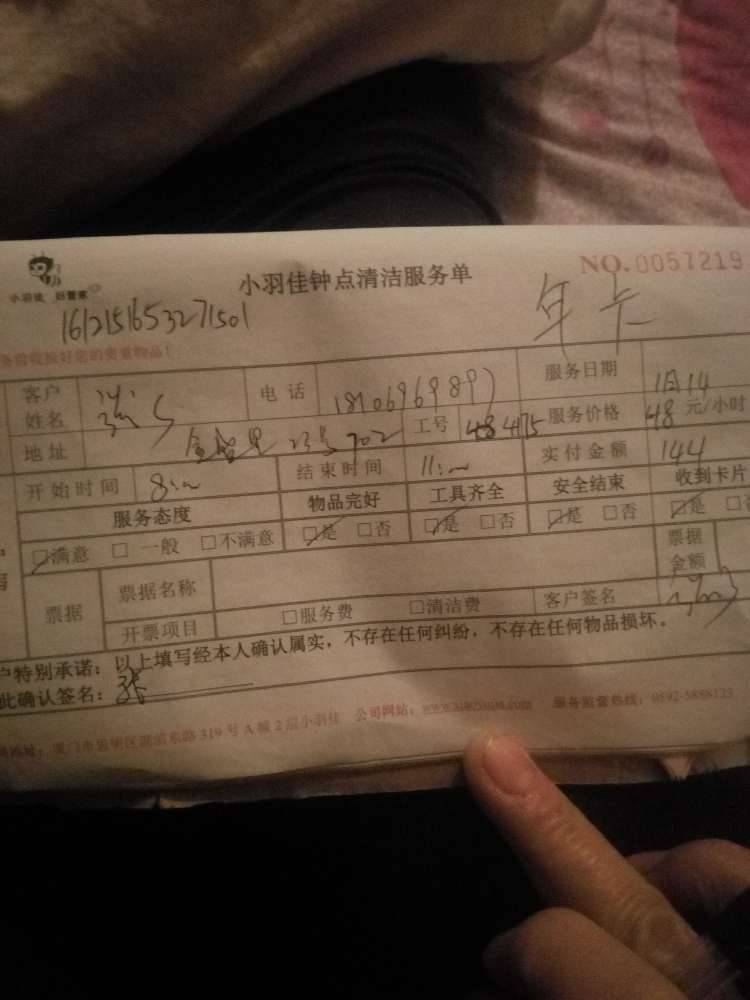 小羽佳 好管家
小羽佳钟点清洁服务单
NO.0057219
1612151653271501
年卡
务前收捡好您的贵重物品!
客户姓名 电话 服务日期 1月14
地址 23号702 工号 48475 服务价格 48 元/小时
开始时间 8:00 结束时间 11:00 实付金额 144
服务态度 物品完好 工具齐全 安全结束 收到卡片
☑满意 □一般 □不满意 ☑是 □否 ☑是 □否 ☑是 □否 ☑是 □
票据 票据名称 票据金额
开票项目 □服务费 □清洁费 客户签名
户特别承诺:以上填写经本人确认属实,不存在任何纠纷,不存在任何物品损坏。
此确认签名:张
地址:厦门市思明区湖滨东路319号A幢2层小羽佳 公司网站: 服务监督热线:0592-5888123